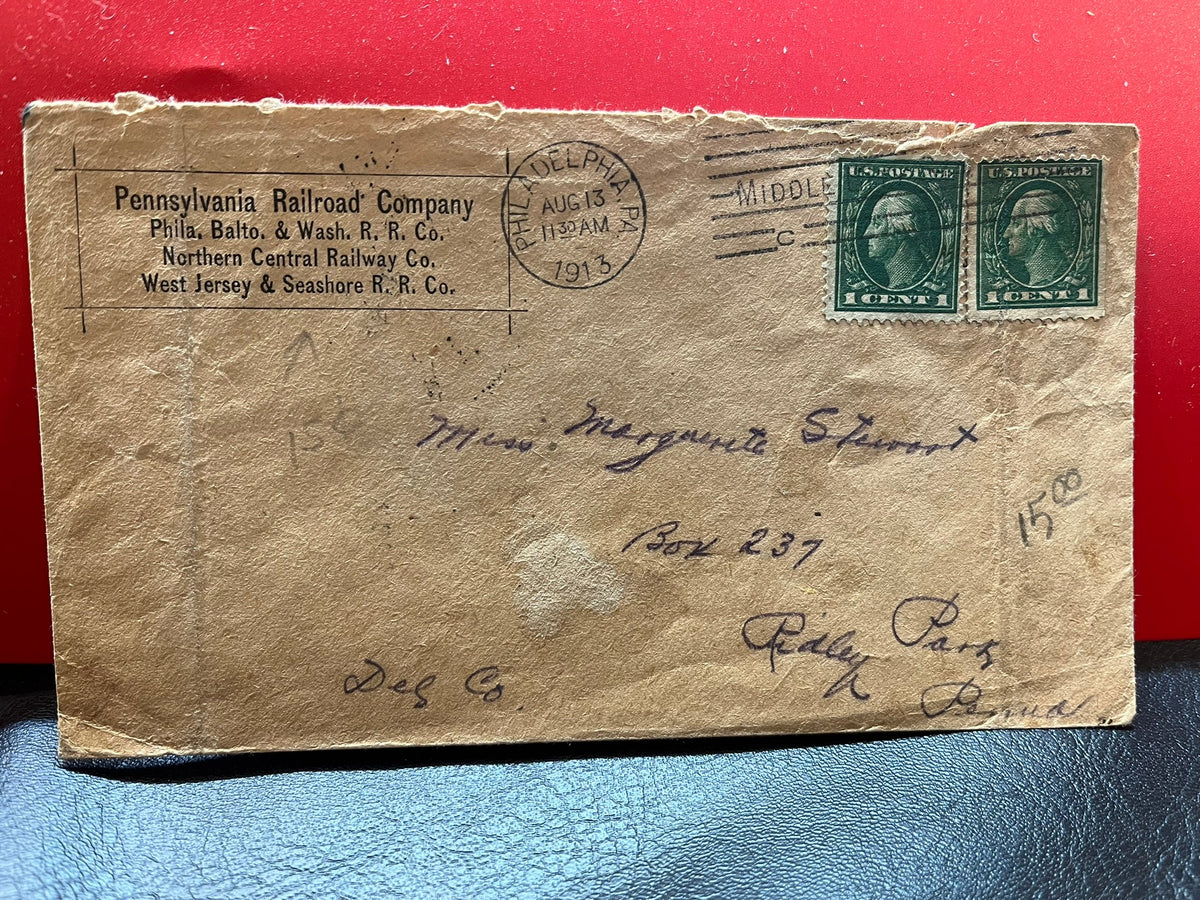 Pennsylvania Railroad Company
Phila. Balto. & Wash. R. R. Co.
Northern Central Railway Co.
West Jersey & Seashore R. R. Co.
PHILADELPHIA, PA.
AUG 13
11 30 AM
1913
MIDDLE
C
U.S. POSTAGE
1 CENT 1
U.S. POSTAGE
1 CENT 1
Miss. Marguerite Stewart
Box 237
15 00
Ridley Park
Del Co.
Penna